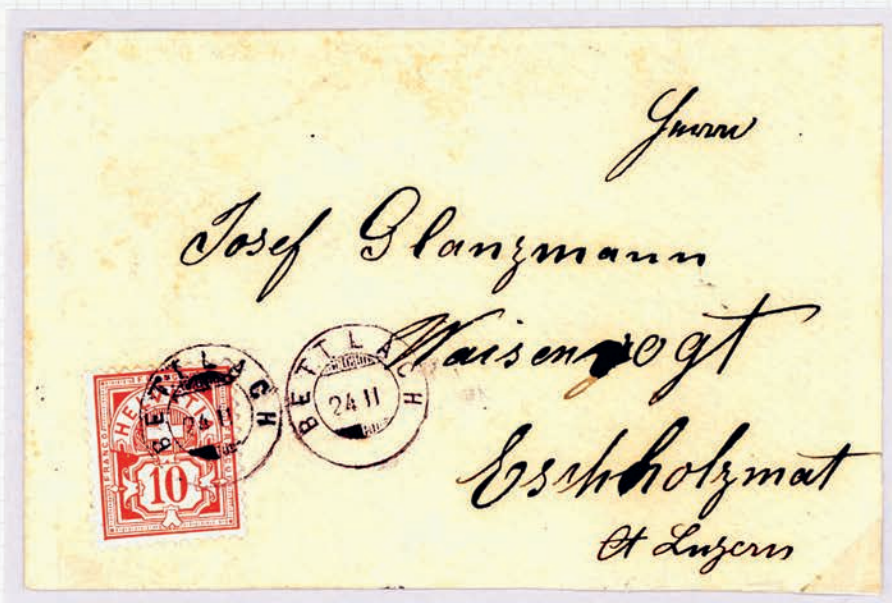 Herrn
Josef Glanzmann
Waisenvogt
Eschholzmat
Ct Luzern
BETTLACH
24 II
BETTLACH
24 II
HELVETIA
FRANCO
10